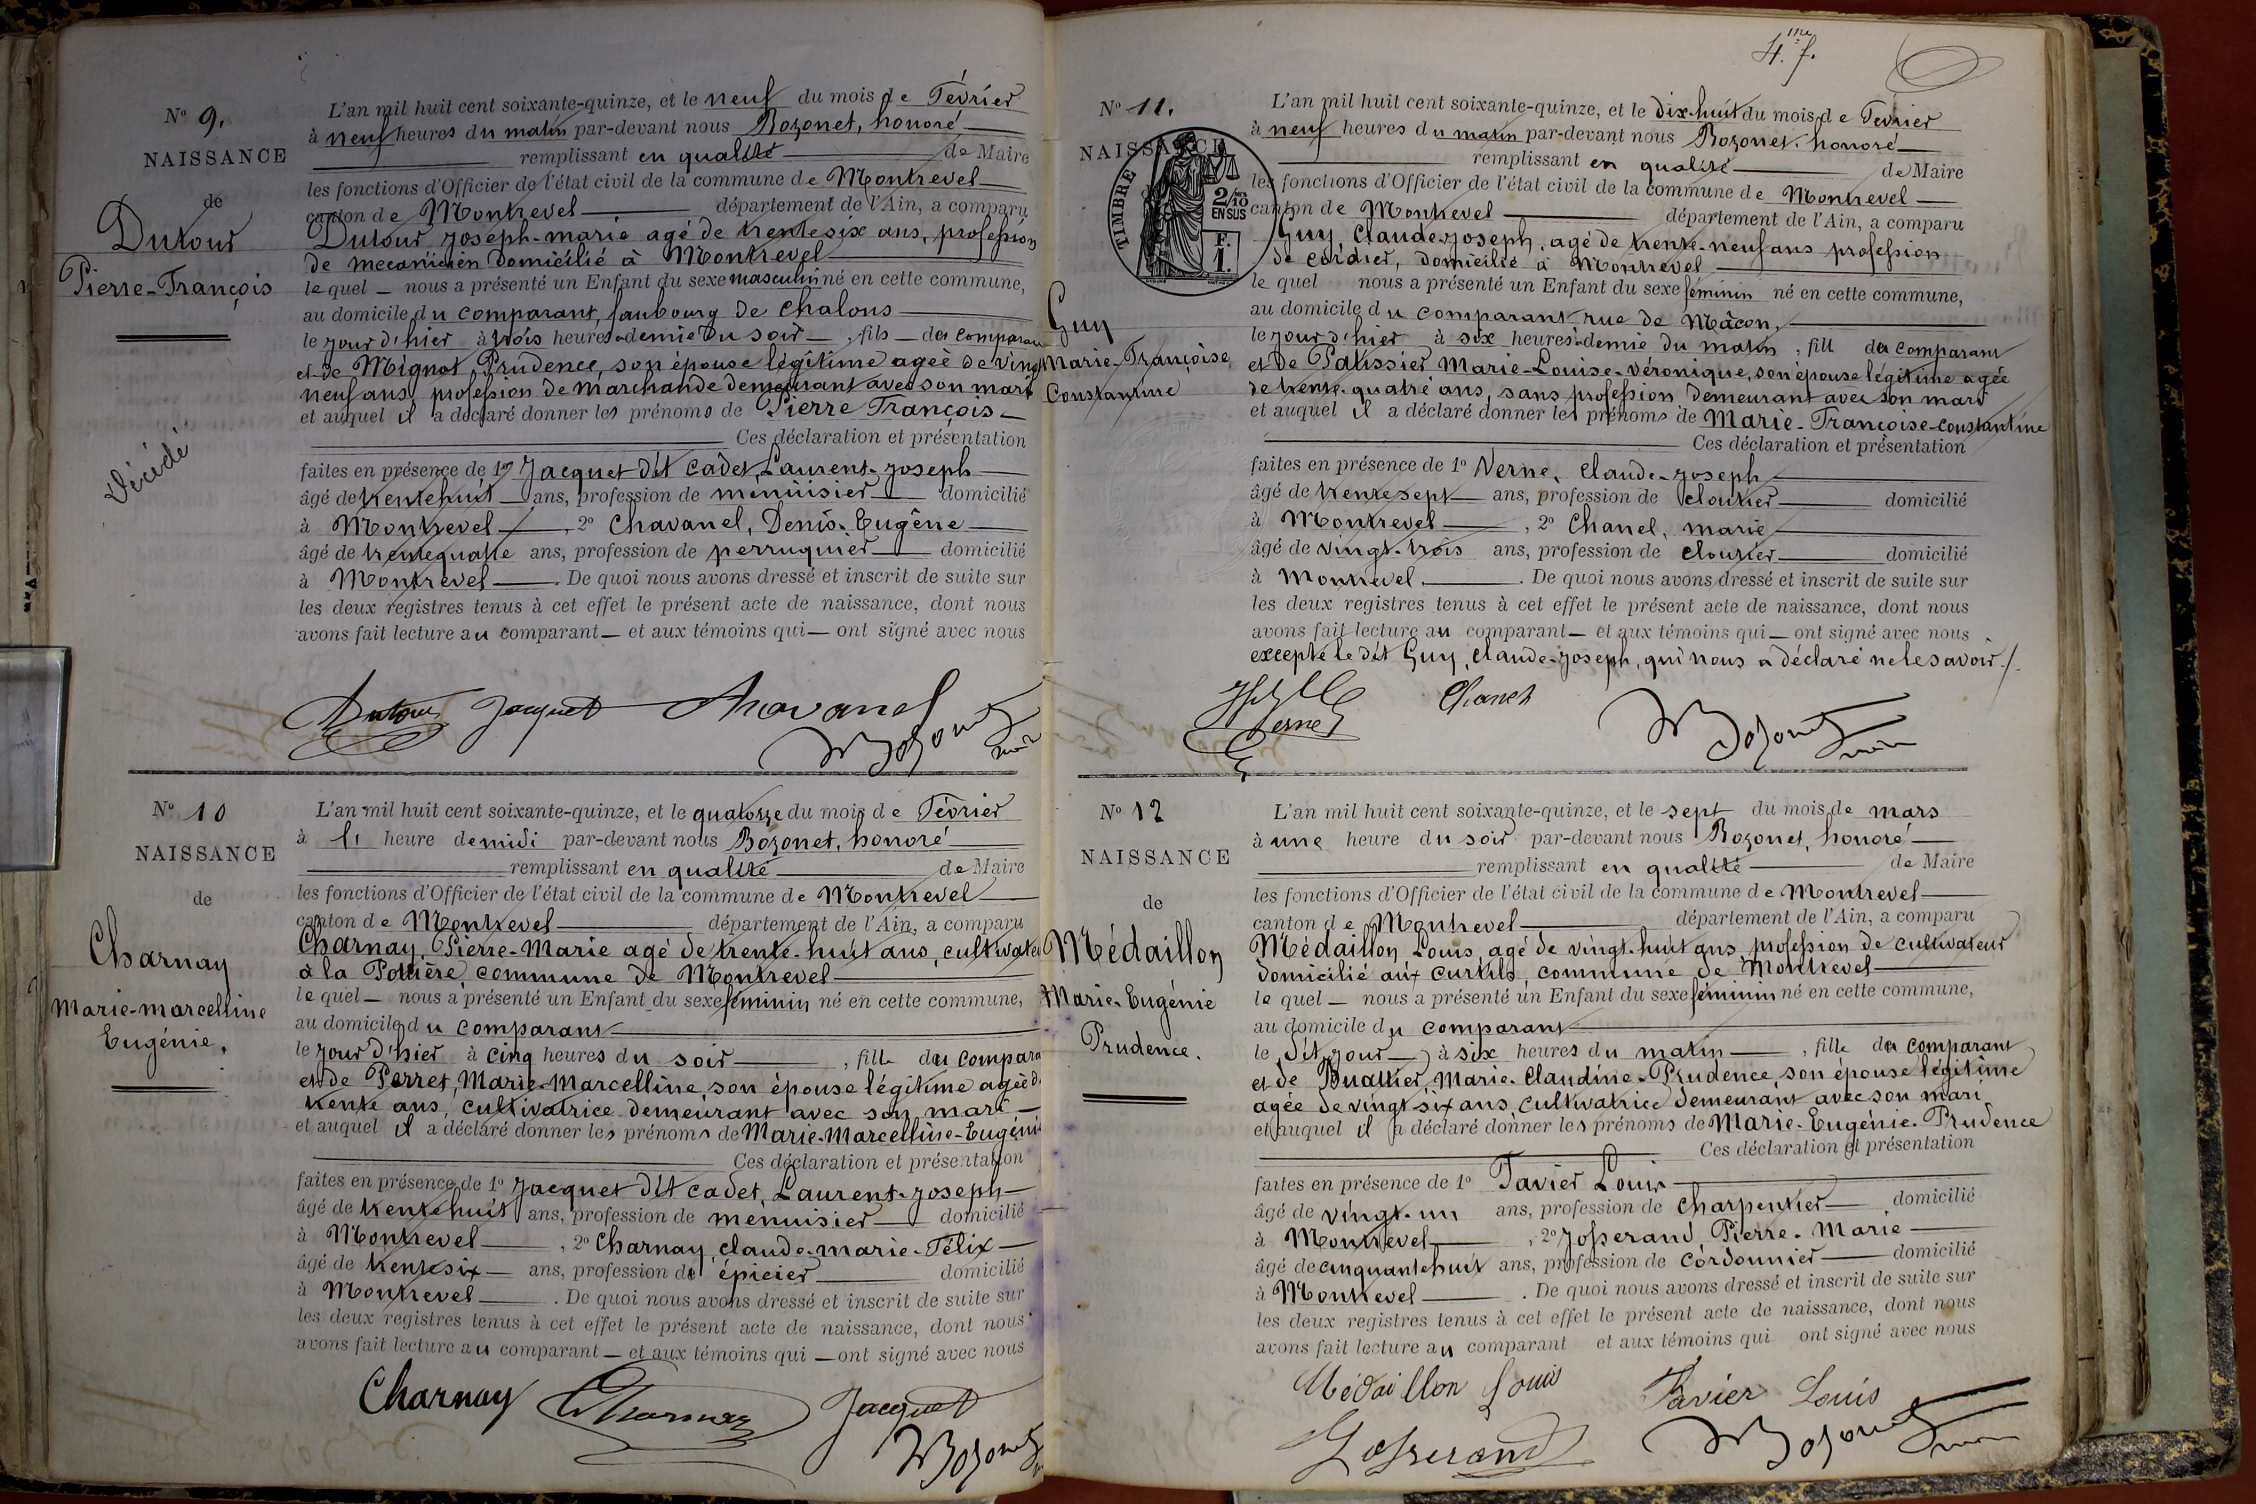 N° 9.
NAISSANCE
de
Dutour
Pierre-François
Décédé
L'an mil huit cent soixante-quinze, et le neuf du mois de Février
à neuf heures du matin par-devant nous Bozonet, honoré
remplissant en qualité de Maire
les fonctions d'Officier de l'état civil de la commune de Montrevel
canton de Montrevel département de l'Ain, a comparu
Dutour Joseph-marie agé de trentesix ans, profession
de mecanicien domicilié à Montrevel
lequel nous a présenté un Enfant du sexe masculin né en cette commune,
au domicile du comparant, faubourg de Chalons
le jour d'hier à trois heures & demie du soir, fils du comparant
et de Mignot, Prudence, son épouse légitime agée de vingt
neuf ans, profession de marchande demeurant avec son mari
et auquel il a déclaré donner les prénoms de Pierre François
Ces déclaration et présentation
faites en présence de 1° Jacquet dit Cadet, Laurent-Joseph
âgé de trentehuit ans, profession de menuisier domicilié
à Montrevel, 2° Chavanel, Denis-Eugène
âgé de trentequatre ans, profession de perruquier domicilié
à Montrevel. De quoi nous avons dressé et inscrit de suite sur
les deux registres tenus à cet effet le présent acte de naissance, dont nous
avons fait lecture au comparant et aux témoins qui ont signé avec nous
Dutour Jacquet Chavanel
Bozonet
N° 10
NAISSANCE
de
Charnay
Marie-marcelline
Eugénie.
L'an mil huit cent soixante-quinze, et le quatorze du mois de Février
à l' heure de midi par-devant nous Bozonet, honoré
remplissant en qualité de Maire
les fonctions d'Officier de l'état civil de la commune de Montrevel
canton de Montrevel département de l'Ain, a comparu
Charnay, Pierre-Marie agé de trente-huit ans, cultivateur
à la Potière, commune de Montrevel
lequel nous a présenté un Enfant du sexe féminin né en cette commune,
au domicile du comparant
le jour d'hier à cinq heures du soir, fille du compara
et de Perret, Marie-Marcelline, son épouse légitime agée de
trente ans, cultivatrice demeurant avec son mari
et auquel il a déclaré donner les prénoms de Marie-Marcelline-Eugénie
Ces déclaration et présentation
faites en présence de 1° Jacquet dit Cadet, Laurent-Joseph
âgé de trentehuit ans, profession de menuisier domicilié
à Montrevel, 2° Charnay, claude-marie-Félix
âgé de trentesix ans, profession de épicier domicilié
à Montrevel. De quoi nous avons dressé et inscrit de suite sur
les deux registres tenus à cet effet le présent acte de naissance, dont nous
avons fait lecture au comparant et aux témoins qui ont signé avec nous
Charnay Charnay Jacquet
Bozonet
4.me f.
N° 11.
NAISSANCE
TIMBRE
2/10
EN SUS
F.
1.
Guy
Marie-Françoise
Constantine
L'an mil huit cent soixante-quinze, et le dix-huit du mois de Février
à neuf heures du matin par-devant nous Bozonet, honoré
remplissant en qualité de Maire
les fonctions d'Officier de l'état civil de la commune de Montrevel
canton de Montrevel département de l'Ain, a comparu
Guy, Claude-Joseph, agé de trente-neuf ans profession
de cordier, domicilié à Montrevel
lequel nous a présenté un Enfant du sexe féminin né en cette commune,
au domicile du comparant rue de Mâcon,
le jour d'hier à six heures & demie du matin, fille du comparant
et de Patissier Marie-Louise-Véronique, son épouse légitime agée
de trente-quatre ans, sans profession demeurant avec son mari
et auquel il a déclaré donner les prénoms de Marie-Françoise-Constantine
Ces déclaration et présentation
faites en présence de 1° Verne, Claude-Joseph
âgé de trentesept ans, profession de cloutier domicilié
à Montrevel, 2° Chanel, marie
âgé de vingt-trois ans, profession de cloutier domicilié
à Montrevel. De quoi nous avons dressé et inscrit de suite sur
les deux registres tenus à cet effet le présent acte de naissance, dont nous
avons fait lecture au comparant et aux témoins qui ont signé avec nous
excepté le dit Guy, Claude-Joseph, qui nous a déclaré ne le savoir ./.
Verne Chanel
Bozonet
N° 12
NAISSANCE
de
Médaillon
Marie-Eugénie
Prudence.
L'an mil huit cent soixante-quinze, et le sept du mois de mars
à une heure du soir par-devant nous Bozonet, honoré
remplissant en qualité de Maire
les fonctions d'Officier de l'état civil de la commune de Montrevel
canton de Montrevel département de l'Ain, a comparu
Médaillon Louis, agé de vingt-huit ans, profession de cultivateur
domicilié aux Curtils, commune de Montrevel
lequel nous a présenté un Enfant du sexe féminin né en cette commune,
au domicile du comparant
le dit jour à six heures du matin, fille du comparant
et de Buattier, Marie-Claudine-Prudence, son épouse légitime
agée de vingt six ans, cultivatrice demeurant avec son mari
et auquel il a déclaré donner les prénoms de Marie-Eugénie-Prudence
Ces déclaration et présentation
faites en présence de 1° Favier Louis
âgé de vingt-un ans, profession de Charpentier domicilié
à Montrevel, 2° Josserand, Pierre-Marie
âgé de cinquantehuit ans, profession de cordonnier domicilié
à Montrevel. De quoi nous avons dressé et inscrit de suite sur
les deux registres tenus à cet effet le présent acte de naissance, dont nous
avons fait lecture au comparant et aux témoins qui ont signé avec nous
Médaillon Louis Favier Louis
Josserand Bozonet